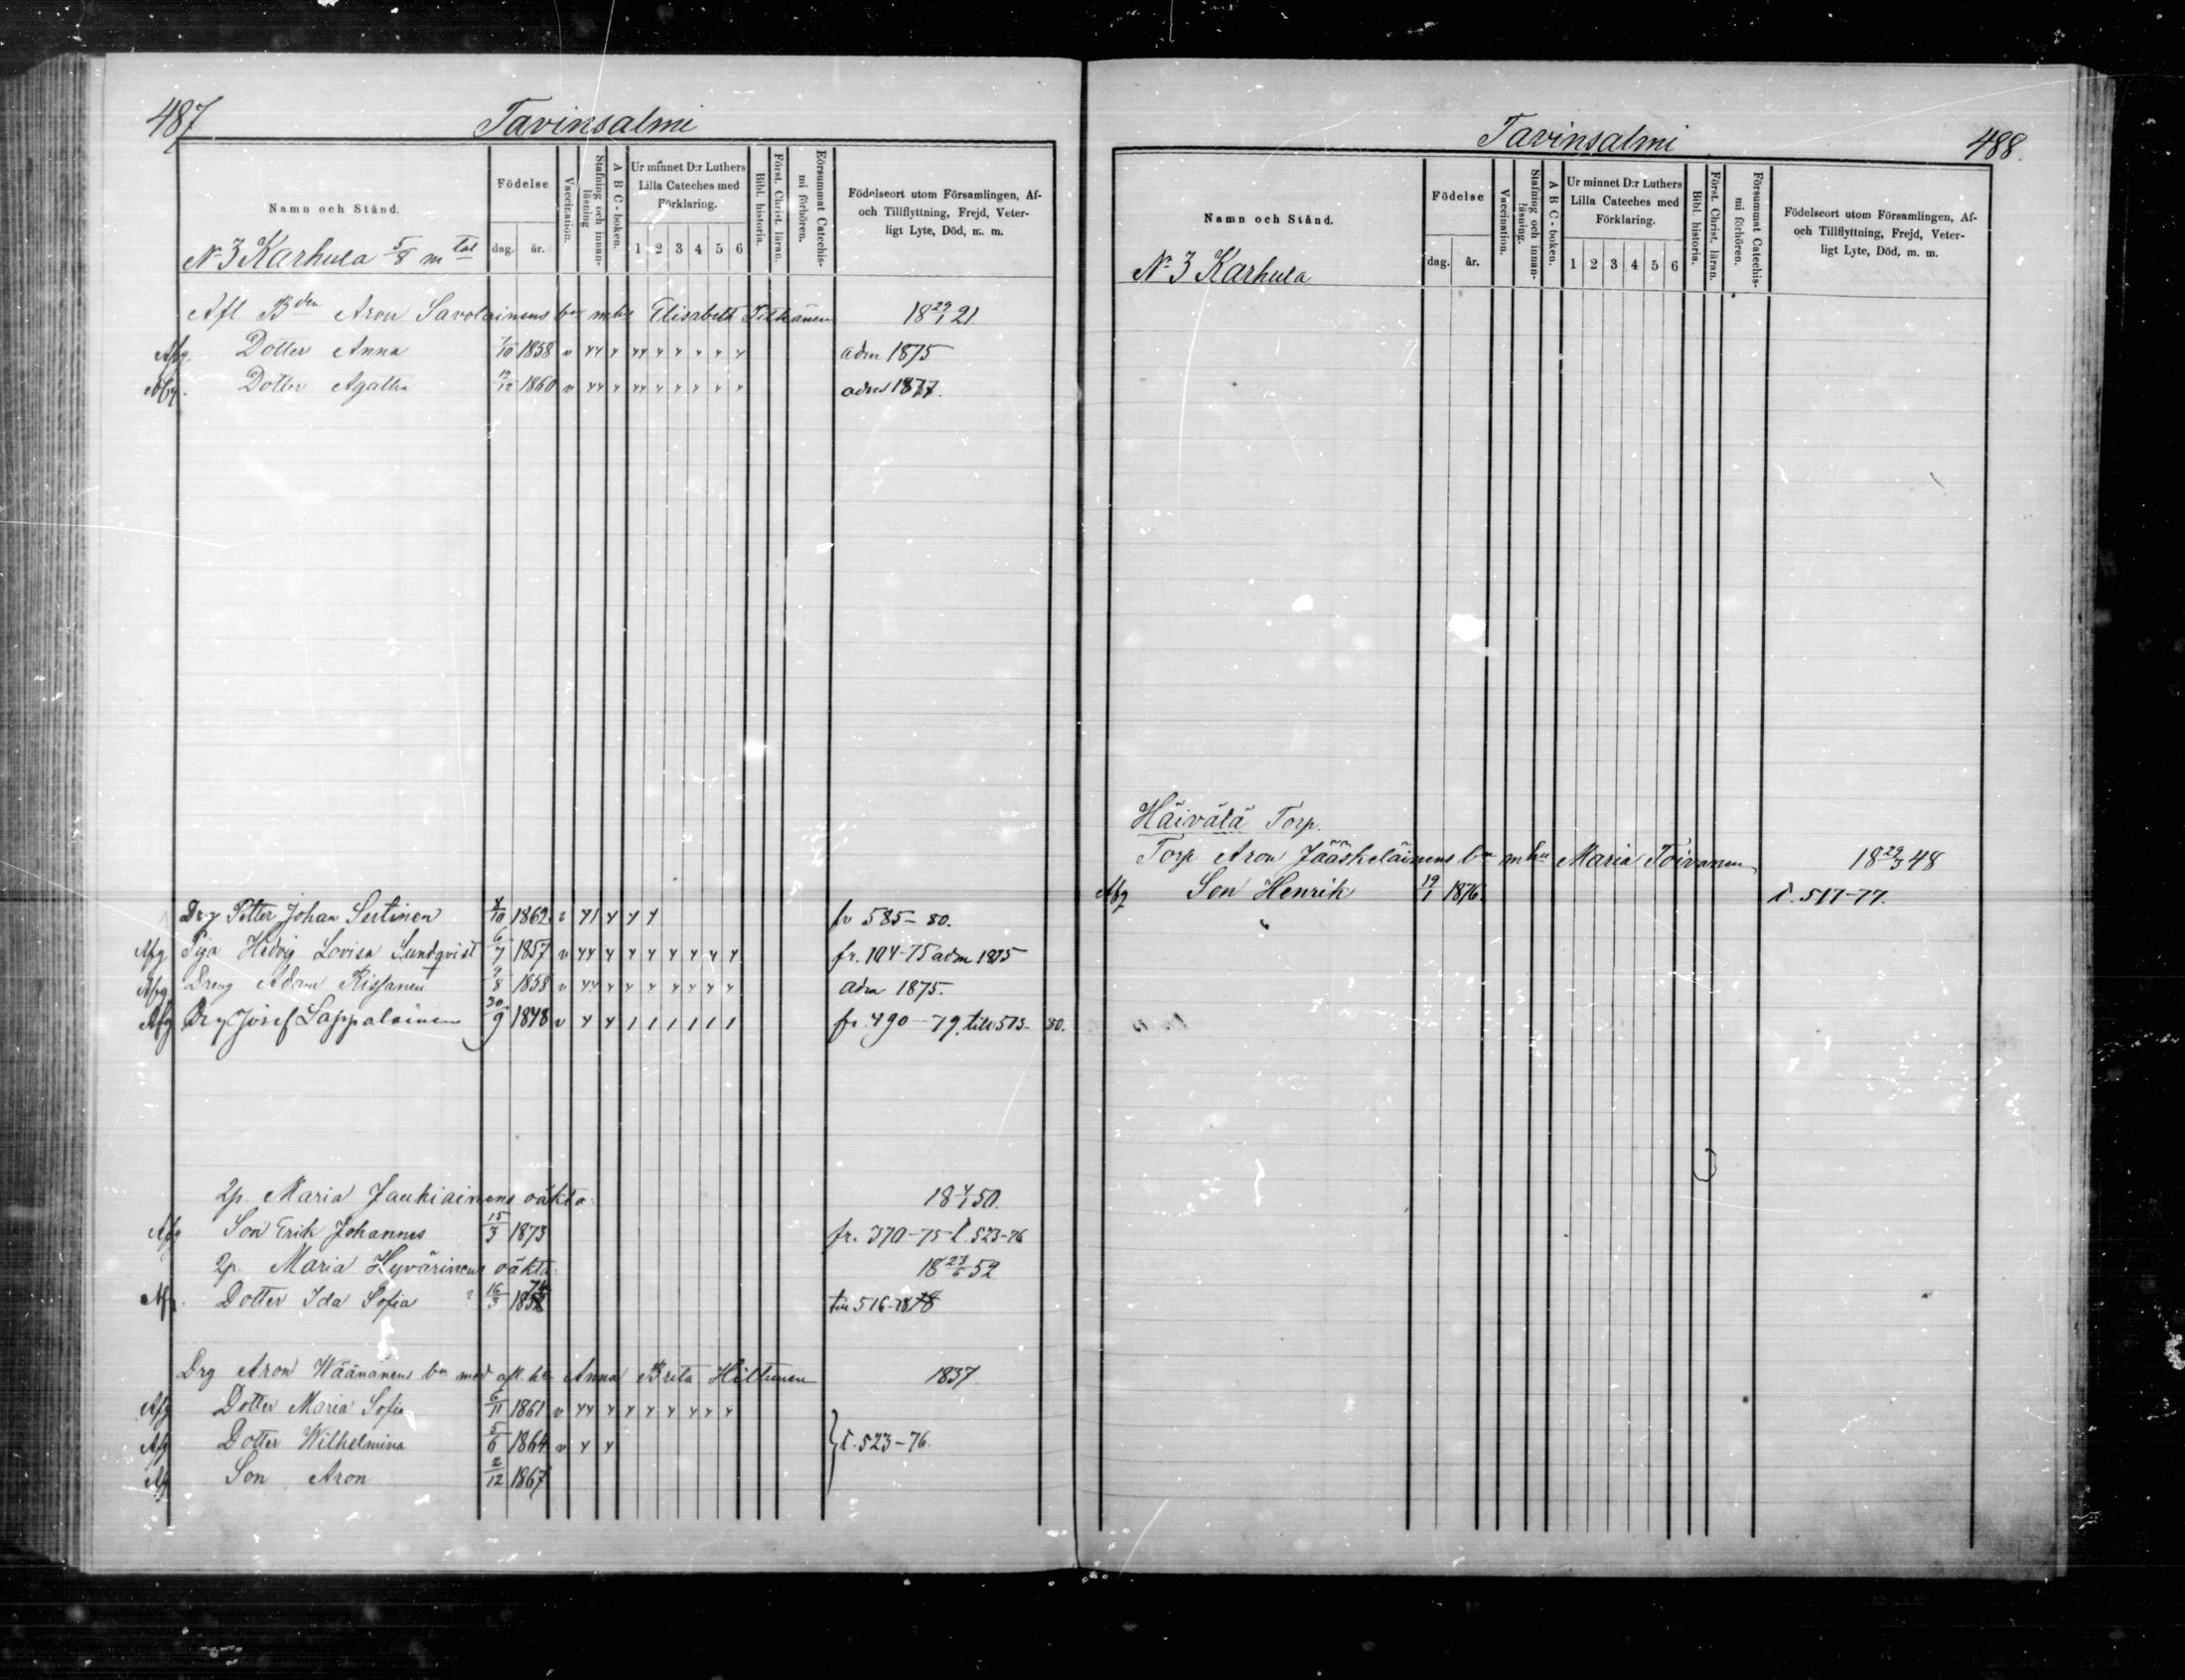 487
Tavinsalmi
Namn och Stånd.
Födelse
dag. år.
Vaccination.
Stafning och innan-läsning
A B C-boken.
Ur minnet D:r Luthers Lilla Cateches med Förklaring.
1 2 3 4 5 6
Bibl. historia.
Först. Christ. läran.
Försummat Catechismi förhören.
Födelseort utom Församlingen, Af-
och Tillflyttning, Frejd, Veter-
ligt Lyte, Död, m. m.
No 3 Karhula 5/8 mtal
Afl Bden Aron Savolainens bn mhu Elisabeth Pitkänen 18 29/1 21.
Afg. Dotter Anna 7/10 1858 v adm 1875
Afg. Dotter Agatha 12/12 1860 v adm 1877.
Drg Petter Johan Sertinen 4/10 1862 v fr 585-80.
Afg Piga Hedvig Lovisa Sundqvist 6/7 1857 v fr. 104-75 adm 1875
Afg Dreng Adam Rissanen 9/8 1858 v adm 1875.
Afg Drg Josef Lappalainen 30/9 1848 v fr. 490-79. till 513-80.
2p. Maria Jauhiainens oäkta: 18 4/1 50.
Afg Son Erik Johannes 15/3 1873 fr. 370-75 t. 523-76
2p. Maria Hyvärinens oäkta: 18 23/6 52
Af. Dotter Ida Sofia ? 16/3 1874 till 516-1878
Drg Aron Wäänänens bn med afl. hu Anna Brita Hiltunen 1837.
Afg Dotter Maria Sofia 6/11 1861 v
Afg Dotter Wilhelmina 5/6 1864 v } t. 523-76.
Af Son Aron 2/12 1867
Tavinsalmi
488.
Namn och Stånd.
Födelse
dag. år.
Vaccination.
Stafning och innan-läsning.
A B C-boken.
Ur minnet D:r Luthers Lilla Cateches med Förklaring.
1 2 3 4 5 6
Bibl. historia.
Först. Christ. läran.
Försummat Catechismi förhören.
Födelseort utom Församlingen, Af-
och Tillflyttning, Frejd, Veter-
ligt Lyte, Död, m. m.
No 3 Karhula
Häivälä Torp.
Torp Aron Jääskeläinens bn mhu Maria Toivanen 18 29/3 48
Afg Son Henrik 19/1 1876. t. 517-77.